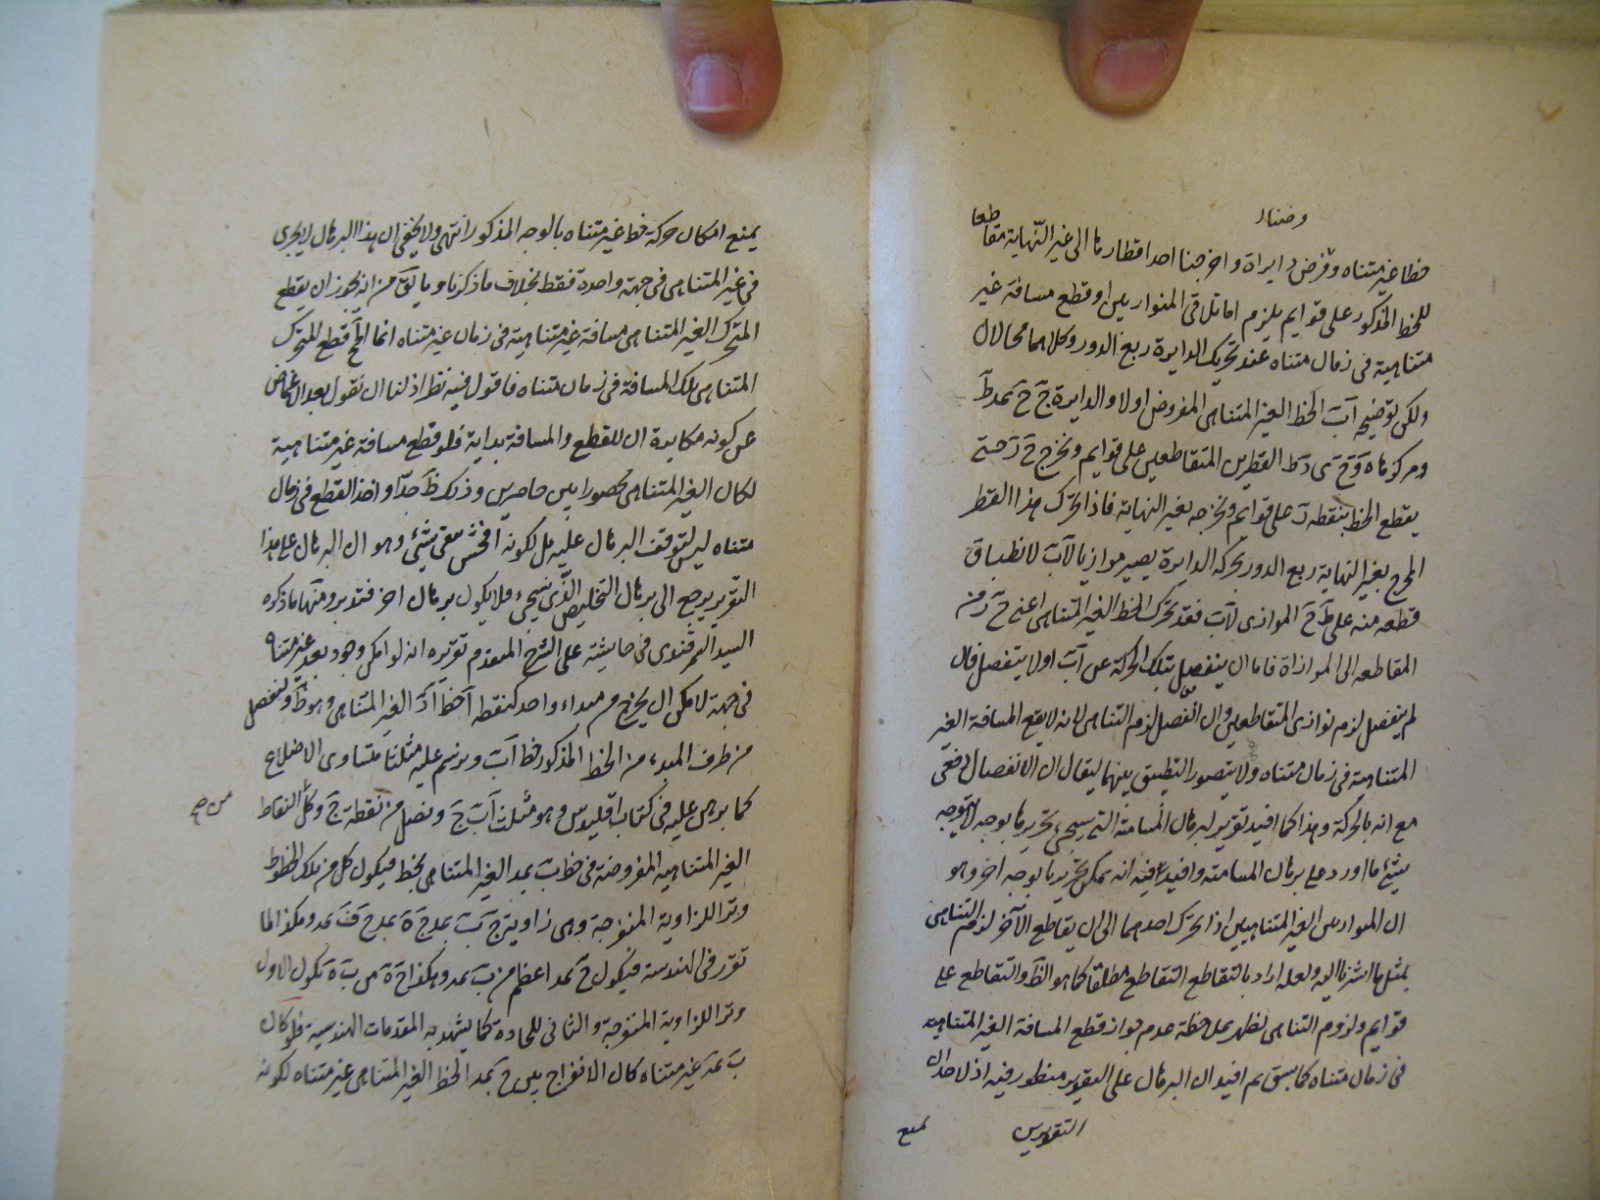 وفرضنا
خطا غير متناه وفرض دايرة واخرجنا احد اقطارها الى غير النهاية مقاطعا
للخط المذكور على قوايم يلزم اما تلاقى المتوازيين او قطع مسافة غير
متناهية فى زمان متناه عند تحريك الدايرة ربع الدور وكلاهما محالان
ولكن توضيحه آب الخط الغير المتناهى المفروض اولا والدايرة
ومركزها ه القطرين المتقاطعين على قوايم ونخرج حتى
يقطع الخط بنقطه ز على قوايم ونخرجه بغير النهاية فاذا تحرك هذا القطر
المخرج بغير النهاية ربع الدور بحركة الدايرة يصير موازيا لآب لانطباق
قطعه منه على ط ح الموازى لآب فقد تحرك الخط الغير المتناهى اعنى ح ز من
المقاطعه الى الموازاة فاما ان ينفصل بتلك الحركة عن آب اولا ينفصل فان
لم ينفصل لزم توازى المتقاطعين وان انفصل لزم التناهى لانه لا يقع المسافة الغير
المتناهية فى زمان متناه ولا يتصور التطبيق بينهما ليقال ان الانفصال دفعى
مع انه بالحركة وهذا كما افيد تقرير لبرهان المسامتة التى سيجىء تحريرها بوجه لا يتوجه
شىء ما اورد على برهان المسامته وافيد فيه انه يمكن تحريرها بوجه اخر وهو
ان المتوازيين الغير المتناهيين اذا تحرك احدهما الى ان يقاطع الآخر لزم التناهى
بمثل ما اشرنا اليه ولعله اراد بالتقاطع التقاطع مطلقا كما هو الظ والتقاطع على
قوايم ولزوم التناهى يظهر بملاحظة عدم جواز قطع المسافة الغير المتناهيه
فى زمان متناه كما سبق ثم افيد ان البرهان على التقديرين منظور فيه اذ لاحد ان
التقديرين
يمنع
يمنع امكان حركة خط غير متناه بالوجه المذكور انتهى ولا يخفى ان هذا البرهان لا يجرى
فى غير المتناهى فى جهة واحدة فقط بخلاف ما ذكرنا وما يق من انه يجوز ان يقطع
المتحرك الغير المتناهى مسافة غير متناهية فى زمان غير متناه انما المح قطع المتحرك
المتناهى تلك المسافة فى زمان متناه فاقول فيه نظر اذ لنا ان نقول بعد الاغماض
عن كونه مكابرة ان للقطع والمسافة بداية فلو قطع مسافة غير متناهية
لكان الغير المتناهى محصورا بين حاصرين وذلك ظ جدا واخذ القطع فى زمان
متناه ليس لتوقف البرهان عليه بل لكونه افحش بقى شىء وهو ان البرهان على هذا
التقرير يرجع الى برهان التخليص الذى سيجىء فلا يكون برهان اخر فتدبر ومنها ما ذكره
السيد السمرقندى فى حاشيته على الشرح المتقدم تقريره انه لو امكن وجود بعد غير متناه
فى جهة لامكن ان يخرج من مبداء واحد كنقطه آ خط آد الغير المتناهى وهو ظ ولنفصل
من طرف المبدء من الخط المذكور خط آب ونرسم عليه مثلثا متساوى الاضلاع
كما برهن عليه فى كتاب اقليدس وهو مثلث آب ج ونصل من نقطة ج وكل النقاط
الغير المتناهيه المفروضة فى خط ب د الغير المتناهى بخط فيكون كل من تلك الخطوط
وتر اللزاوية المنفرجة وهى زاوية ج ب د وهكذا لما
تقرر فى الهندسة فيكون ج د اعظم من ب د وهكذا ج ه من ب ه لكون الاول
وتر اللزاوية المنفرجة والثانى للحادة كما يشهد به المقدمات الهندسية فلو كان
ب د غير متناه كان الانفراج بين ج د الخط الغير المتناهى غير متناه لكونه